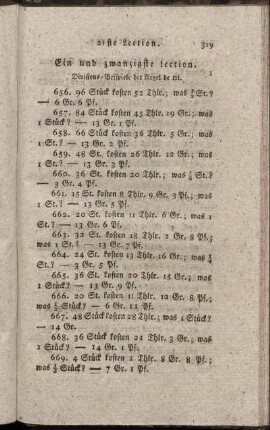 21ste Lection. 319
Ein und zwanzigste Lection.
Divisions-Beispiele der Regel de tri.
656. 96 Stück kosten 52 Thlr.; was ¼ St.?
— 6 Gr. 6 Pf.
657. 84 Stück kosten 45 Thlr. 19 Gr.; was
1 Stück? — 13 Gr. 1 Pf.
658. 66 Stück kosten 36 Thlr. 5 Gr.; was
— 13 Gr. 2 Pf.
659. 48 St. kosten 26 Thlr. 12 Gr.; was
— 13 Gr. 3 Pf.
660. 36 St. kosten 20 Thlr. 1 Gr.; was
St.? — 3 Gr. 4 Pf.
661. 15 St. kosten 8 Thlr. 9 Gr. 3 Pf.; was
1 St.? — 13 Gr. 5 Pf.
662. 20 St. kosten 11 Thlr. 6 Gr.; was 1
St.? — 13 Gr. 6 Pf.
663. 32 St. kosten 18 Thlr. 2 Gr. 8 Pf.;
was 1 St.? — 13 Gr. 7 Pf.
664. 24 St. kosten 13 Thlr. 16 Gr.; was
St.? — 3 Gr. 5 Pf.
665. 36 St. kosten 20 Thlr. 15 Gr.; was
1 Stück? — 13 Gr. 9 Pf.
666. 20 St. kosten 11 Thlr. 12 Gr. 8 Pf.;
was ½ Stück? — 6 Gr. 11 Pf.
667. 48 Stück kosten 28 Thlr.; was 1 Stück?
— 14 Gr.
668. 36 Stück kosten 21 Thlr. 3 Gr.; was
1 Stück? — 14 Gr. 1 Pf.
669. 4 Stück kosten 2 Thlr. 8 Gr. 8 Pf.;
was ½ Stück? — 7 Gr. 1 Pf.